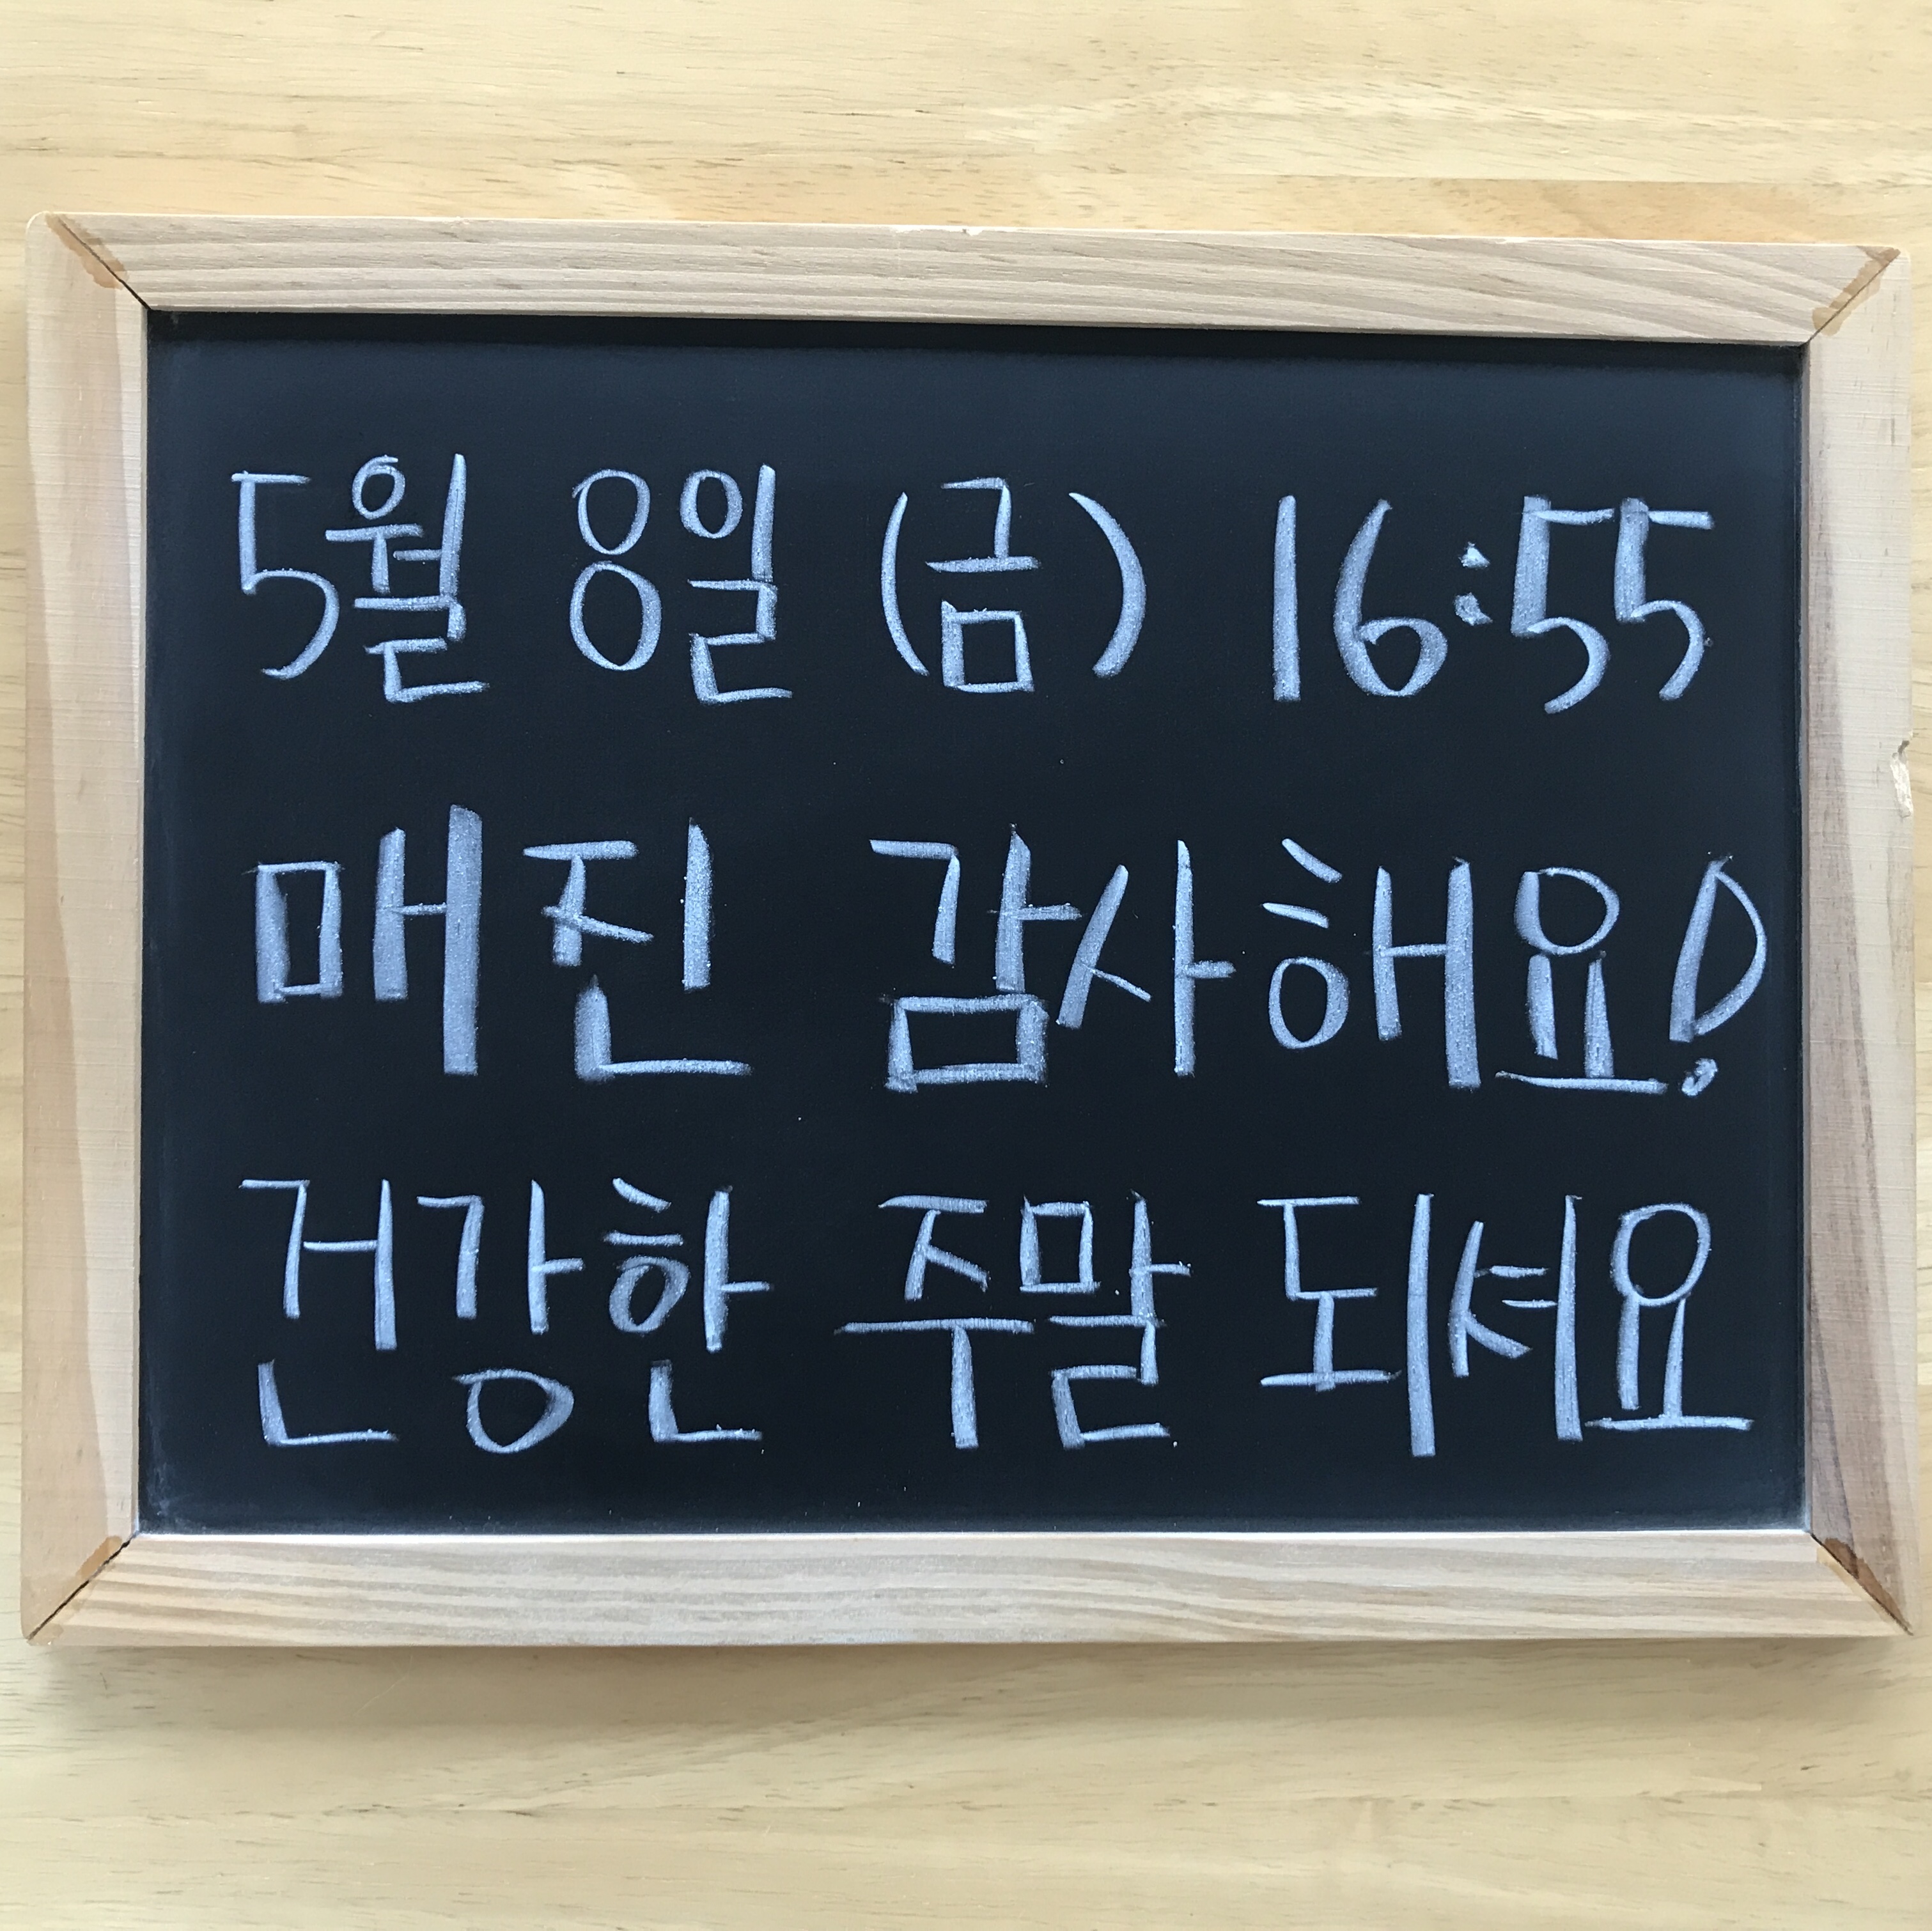 5월 8일 (금) 16:55
매진 감사해요!
건강한 주말 되셔요